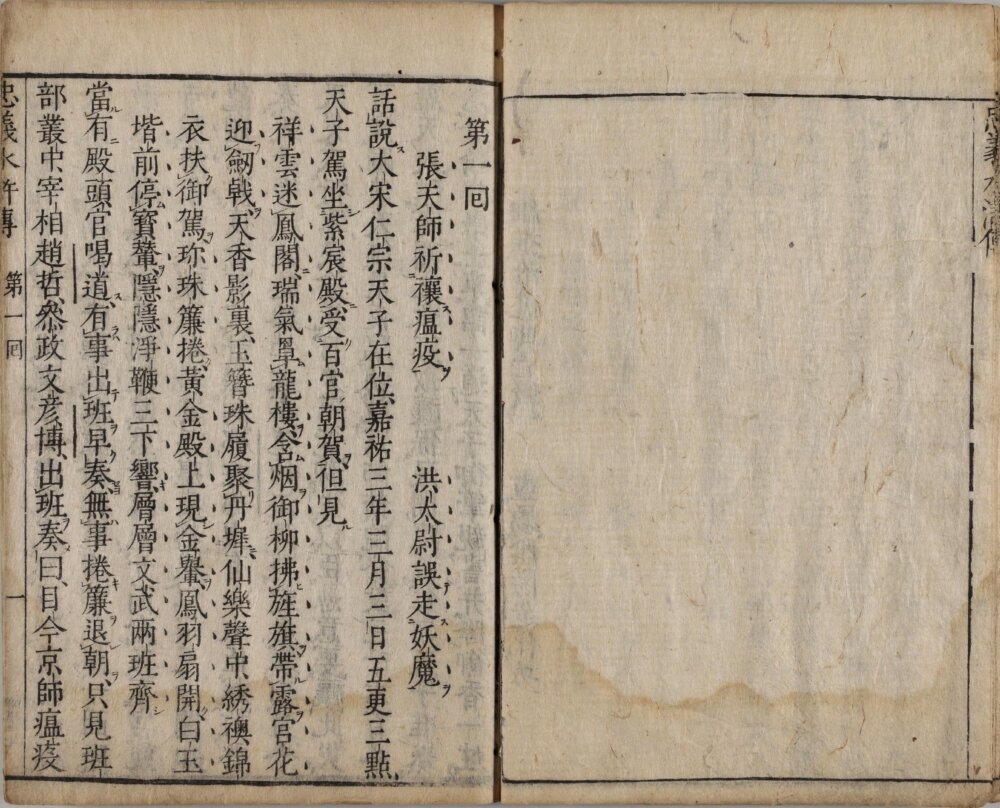 第一囘
張天師祈禳瘟疫 洪太尉誤走妖魔
話說大宋仁宗天子在位嘉祐三年三月三日五更三點
天子駕坐紫宸殿受百官朝賀但見
祥雲迷鳳閣瑞氣罩龍樓含烟御柳拂旌旗帶露宮花
迎劒戟天香影裏玉簪珠履聚丹墀仙樂聲中綉襖錦
衣扶御駕珎珠簾捲黃金殿上現金轝鳳羽扇開白玉
堦前停寶輦隱隱淨鞭三下響層層文武兩班齊
當有殿頭官喝道有事出班早奏無事捲簾退朝只見班
部叢中宰相趙哲叅政文彦博出班奏曰目今京師瘟疫
忠義水滸傳 第一囘 一